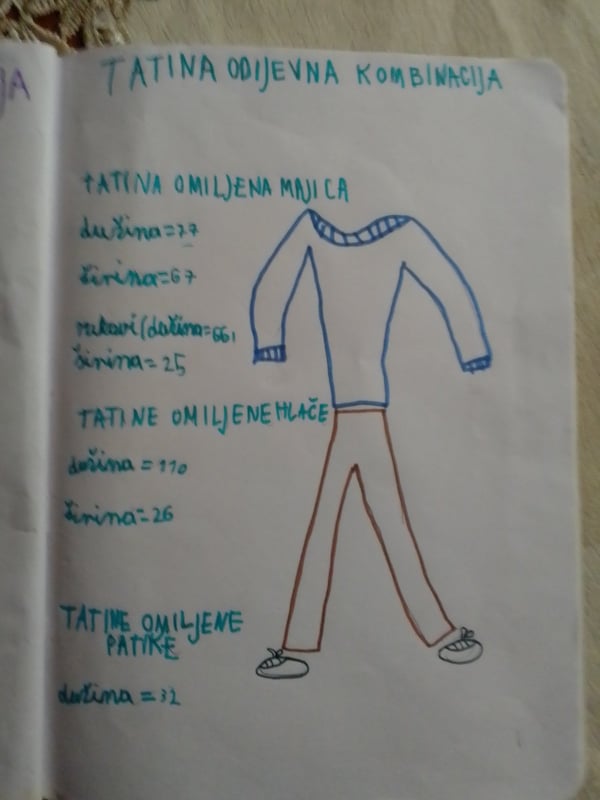 JA
TATINA ODIJEVNA KOMBINACIJA
TATINA OMILJENA MAJICA
dužina=77
širina=67
rukavi(dužina=66,
širina=25
TATINE OMILJENE HLAČE
dužina=110
širina=26
TATINE OMILJENE
PATIKE
dužina=32